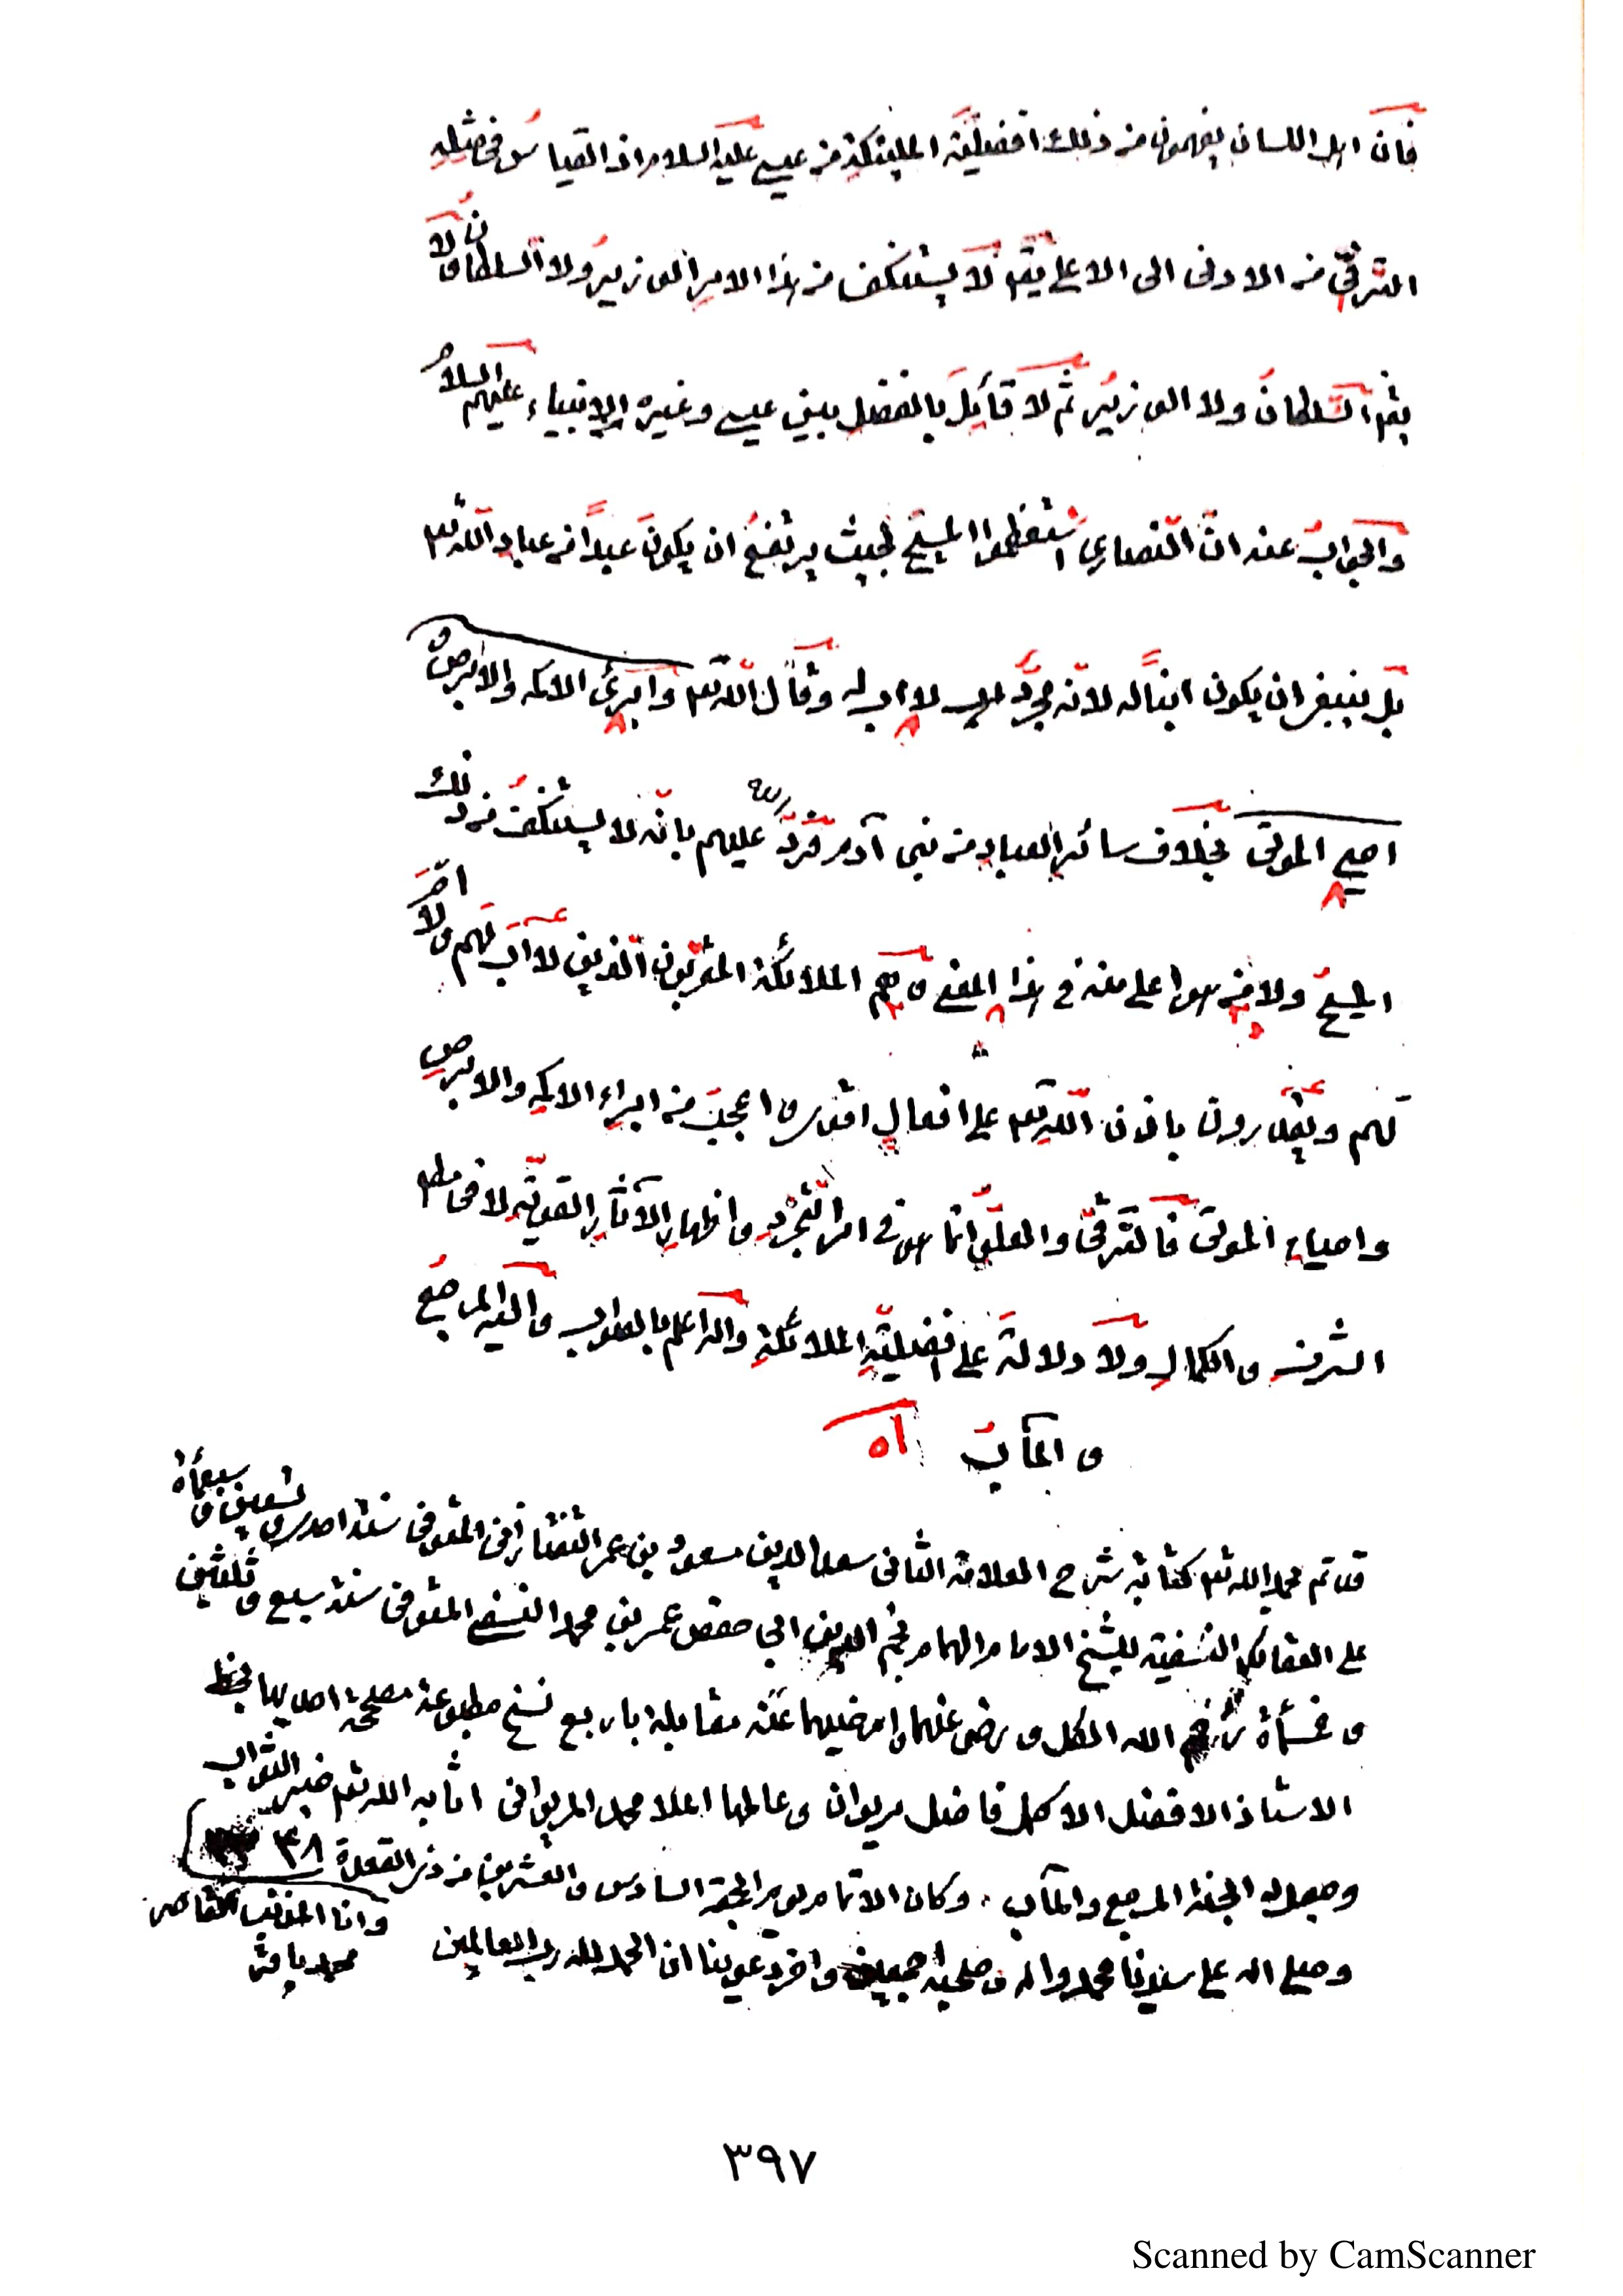 فان اهل اللسان يفهمون من ذلك افضليّة الملئكة من عيسى عليه السلام اذ القياسُ فى مثلِهِ
الترقّى من الادنى الى الاعلى يقه لا يستنكف من هذا الامرِ الوزيرُ ولا السلطانُ ولا
يقه السلطانُ ولا الوزيرُ ثمّ لا قائِلَ بالفضل بين عيسى وغيرِه من الانبياء عليهم السلامُ
والجوابُ عنه انّ النصارى استعظموا المسيحَ بحيث يرتفعُ ان يكونَ عبداً من عبادِ الله تعه
بل ينبغى ان يكون ابناً له لانّه مجرّدٌ لا اب له وقال الله تعه وابرئ الاكمه والابرص و
احيى الموتى بخلاف سائر العبادِ من بنى آدم فردّ عليهم بانّه لا يستنكفُ من ذلك
المسيحُ ولا من هو اعلى منه فى هذا المعنى وهم الملائكة المقرّبون الذين لا اب لهم ولا امَّ
لهم ويقدرون باذن الله تعه على افعالٍ اقوى واعجبَ من ابراءِ الاكمهِ والابرصِ
واحياءِ الموتى فالترقّى والعلوّ انّما هو فى امر التجرّدِ واظهارِ الآثارِ القويّةِ لا فى مطه
الشرفِ والكمالِ ولا دلالةَ على افضليّةِ الملائكةِ والله اعلم بالصواب واليه المرجعُ
و المآبُ اه
قد تم بحمد الله تعه كتابة شرح العلامة الثانى سعد الدين مسعود بن عمر التفتازانى المتوفى سنة احدى وتسعين و سبعمأة
على العقائد النسفية للشيخ الامام الهمام نجم الدين ابى حفص عمر بن محمد النسفى المتوفى سنة سبع و ثلثين
و خمسمأة رحم الله الكل ورضى عنهما وارضيهما عنه مقابلة باربع نسخ مطبوعة مصححة احديها بخط
الاستاذ الافضل الاكمل فاضل مريوان و عالمها الملا محمد المريوانى اثابه الله تعه خير الثواب
وجعل له الجنة المرجع والمآب . وكان الاتمام يوم الجمعة السادس والعشرين من ذى القعدة ٣٨
وصلى الله على سيدنا محمد واله وصحبه اجمعين واخر دعوينا ان الحمد لله رب العالمين
وانا المذنب القاصر
محمد باقر
٣٩٧
Scanned by CamScanner